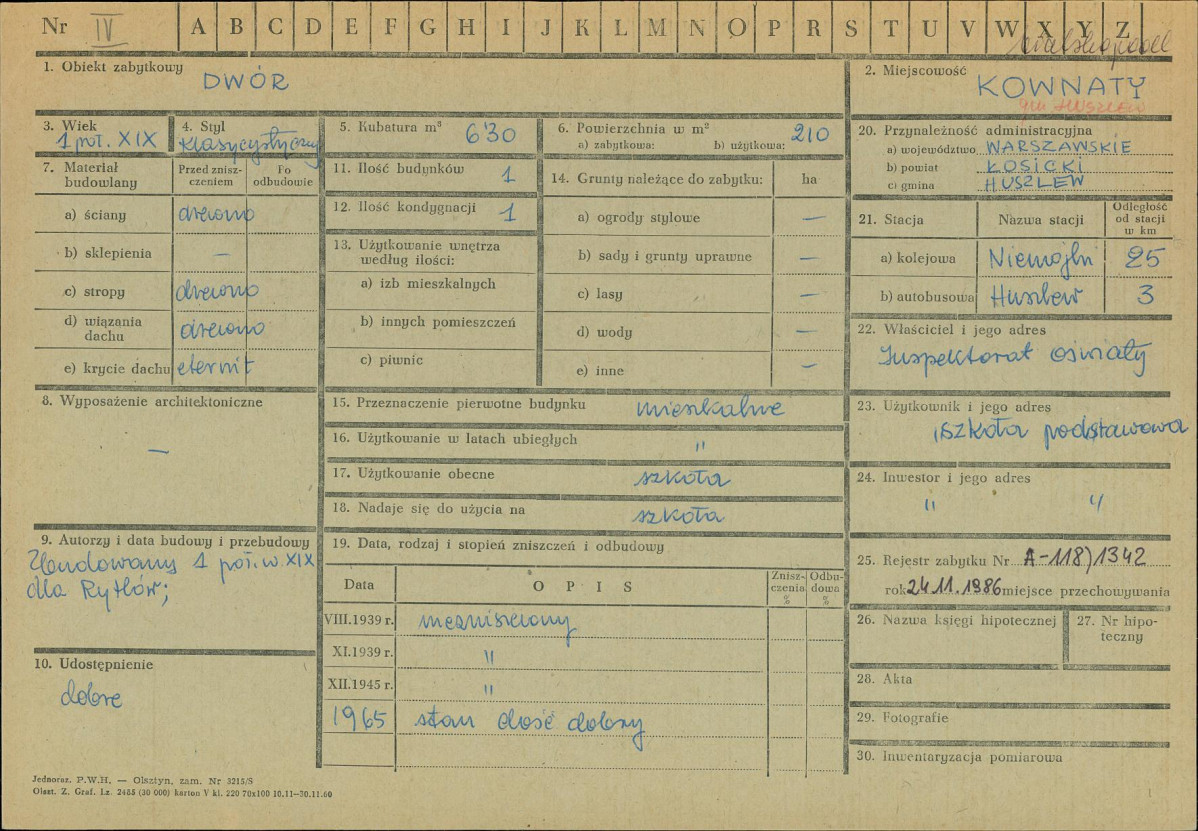 Nr IV A B C D E F G H I J K L M N O P R S T U V W X Y Z
1. Obiekt zabytkowy DWÓR
2. Miejscowość KOWNATY
gm HUSZLEW
3. Wiek 1 poł. XIX
4. Styl klasycystyczny
5. Kubatura m³ 630
6. Powierzchnia w m² 210
a) zabytkowa: b) użytkowa:
7. Materiał budowlany
Przed zniszczeniem
Po odbudowie
a) ściany drewno
b) sklepienia —
c) stropy drewno
d) wiązania dachu drewno
e) krycie dachu eternit
8. Wyposażenie architektoniczne
—
9. Autorzy i data budowy i przebudowy
Zbudowany 1 poł. w. XIX
dla Rytlów;
10. Udostępnienie
dobre
11. Ilość budynków 1
12. Ilość kondygnacji 1
13. Użytkowanie wnętrza
według ilości:
a) izb mieszkalnych
b) innych pomieszczeń
c) piwnic
14. Grunty należące do zabytku: ha
a) ogrody stylowe —
b) sady i grunty uprawne —
c) lasy —
d) wody —
e) inne —
15. Przeznaczenie pierwotne budynku mieszkalne
16. Użytkowanie w latach ubiegłych "
17. Użytkowanie obecne szkoła
18. Nadaje się do użycia na szkoła
19. Data, rodzaj i stopień zniszczeń i odbudowy
Data OPIS Zniszczenia % Odbudowa %
VIII.1939 r. niezniszczony
XI.1939 r. "
XII.1945 r. "
1965 stan dość dobry
20. Przynależność administracyjna
a) województwo WARSZAWSKIE
b) powiat ŁOSICKI
c) gmina HUSZLEW
21. Stacja Nazwa stacji Odległość od stacji w km
a) kolejowa Niemojki 25
b) autobusowa Huszlew 3
22. Właściciel i jego adres
Inspektorat oświaty
23. Użytkownik i jego adres
szkoła podstawowa
24. Inwestor i jego adres
" "
25. Rejestr zabytku Nr A-118)1342
rok 24.11.1986 miejsce przechowywania
26. Nazwa księgi hipotecznej
27. Nr hipoteczny
28. Akta
29. Fotografie
30. Inwentaryzacja pomiarowa
Jednoraz. P.W.H. — Olsztyn, zam. Nr 3215/S
Olszt. Z. Graf. Lz. 2485 (30 000) karton V kl. 220 70x100 10.11—30.11.60